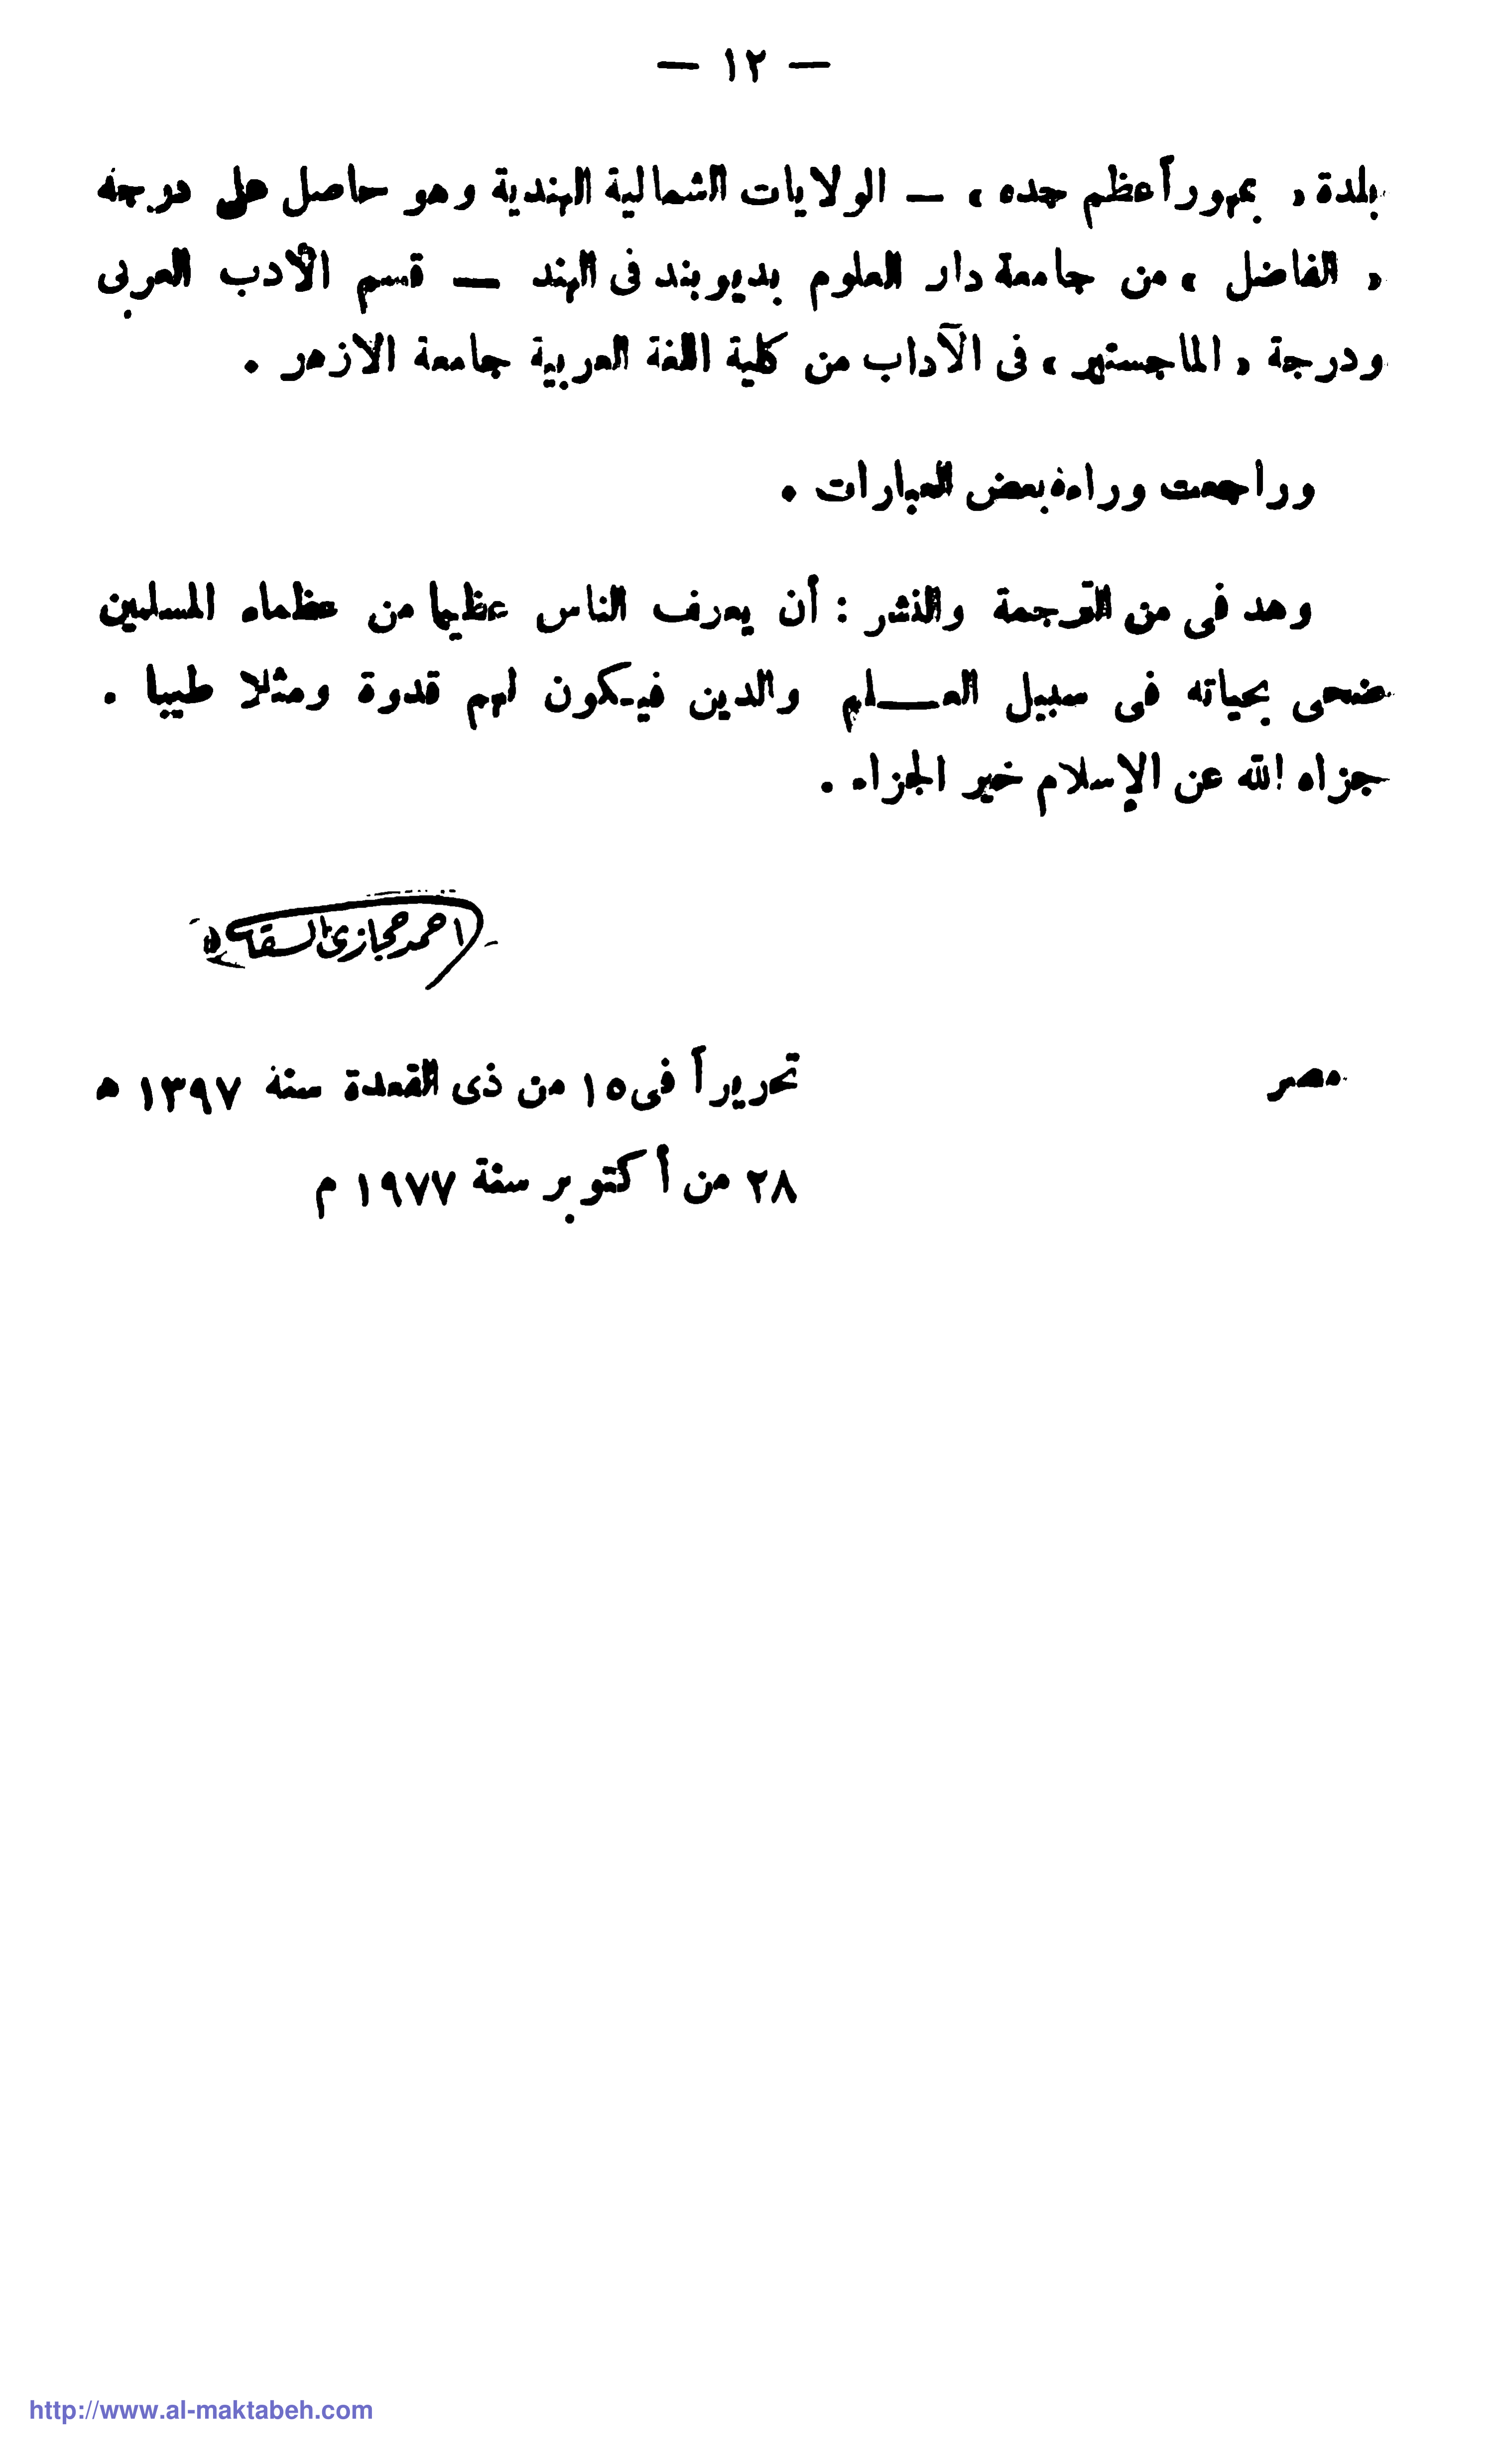 — ١٢ —
بلدة « بمهور أعظم جده » — الولايات الشمالية الهندية وهو حاصل على درجة
« الفاضل » من جامعة دار العلوم بديوبند فى الهند — قسم الأدب العربى
ودرجة « الماجستير » فى الآداب من كلية اللغة العربية جامعة الازهر .
وراجعت وراءه بعض العبارات .
وهدفى من الترجمة والنشر : أن يعرف الناس عظيما من عظماء المسلمين
ضحى بحياته فى سبيل العـــلم والدين فيـكون لهم قدوة ومثلا طيبا .
جزاه الله عن الإسلام خير الجزاء .
احمد حجازى السقا
مصر
تحريراً فى ١٥ من ذى القعدة سنة ١٣٩٧ ه
٢٨ من أكتوبر سنة ١٩٧٧ م
http://www.al-maktabeh.com